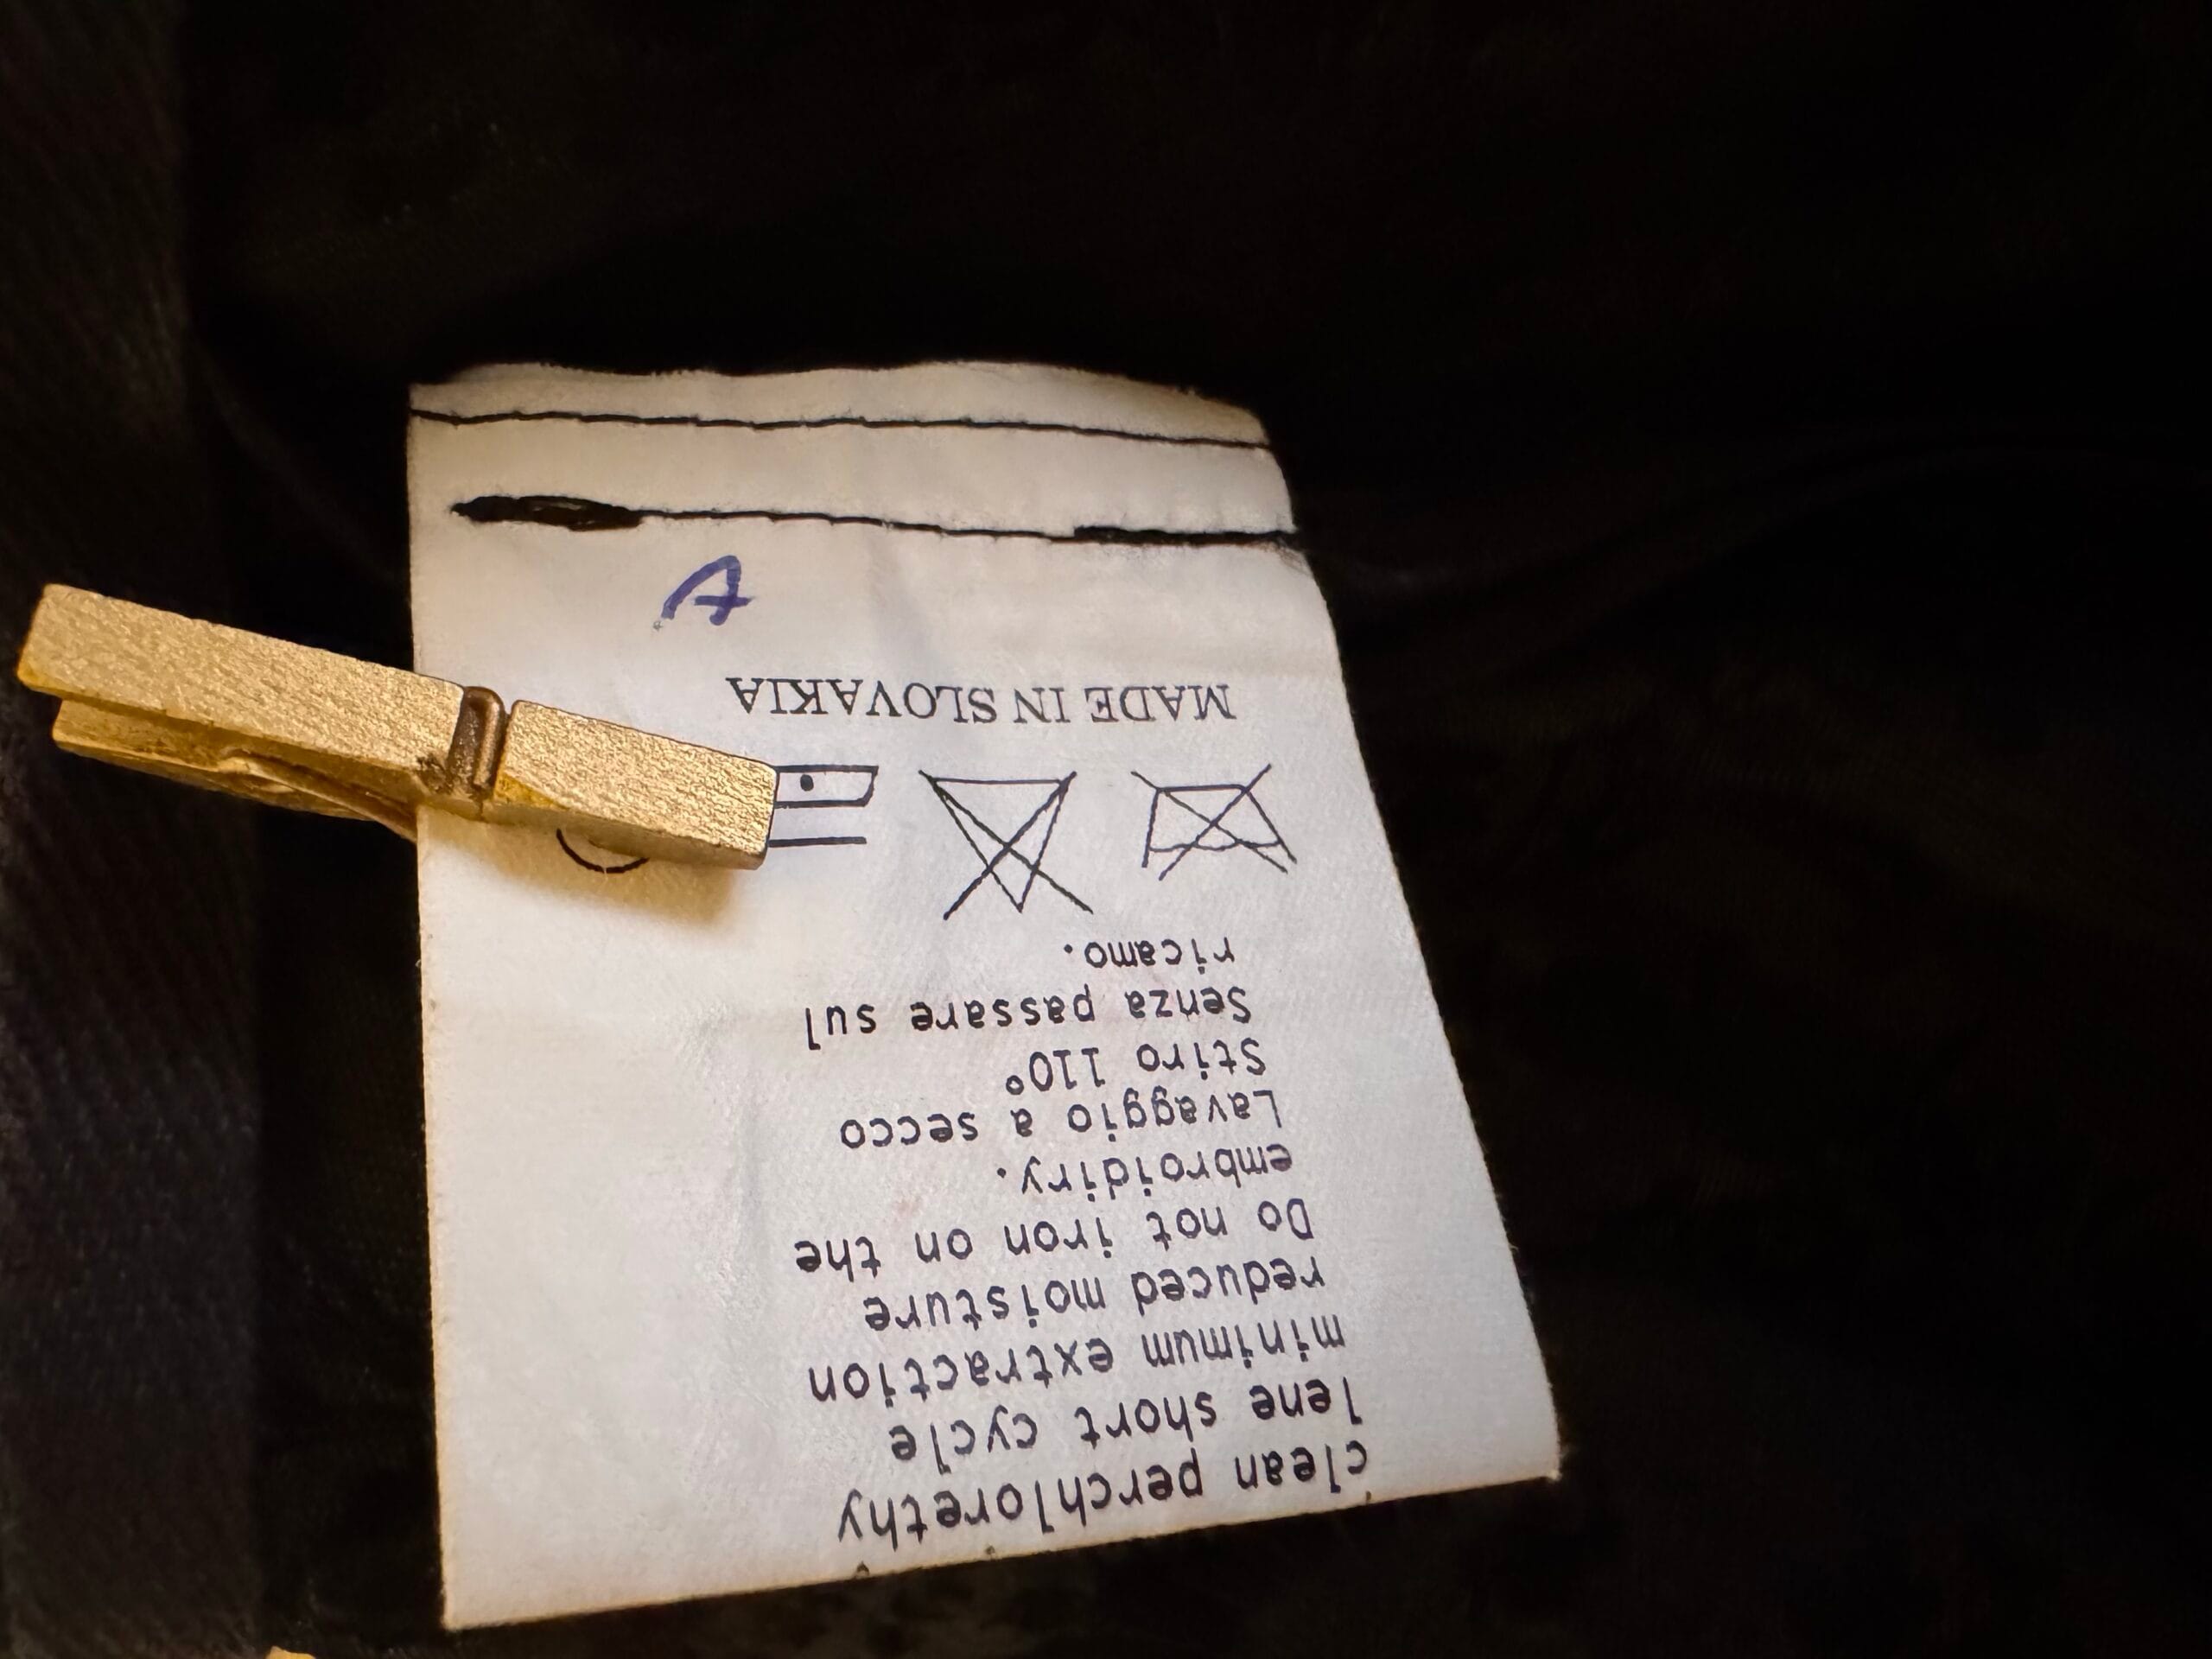 clean perchlorethy
lene short cycle
minimum extraction
reduced moisture
Do not iron on the
embroidiry.
Lavaggio a secco
Stiro 110°
Senza passare sul
ricamo.
MADE IN SLOVAKIA
A